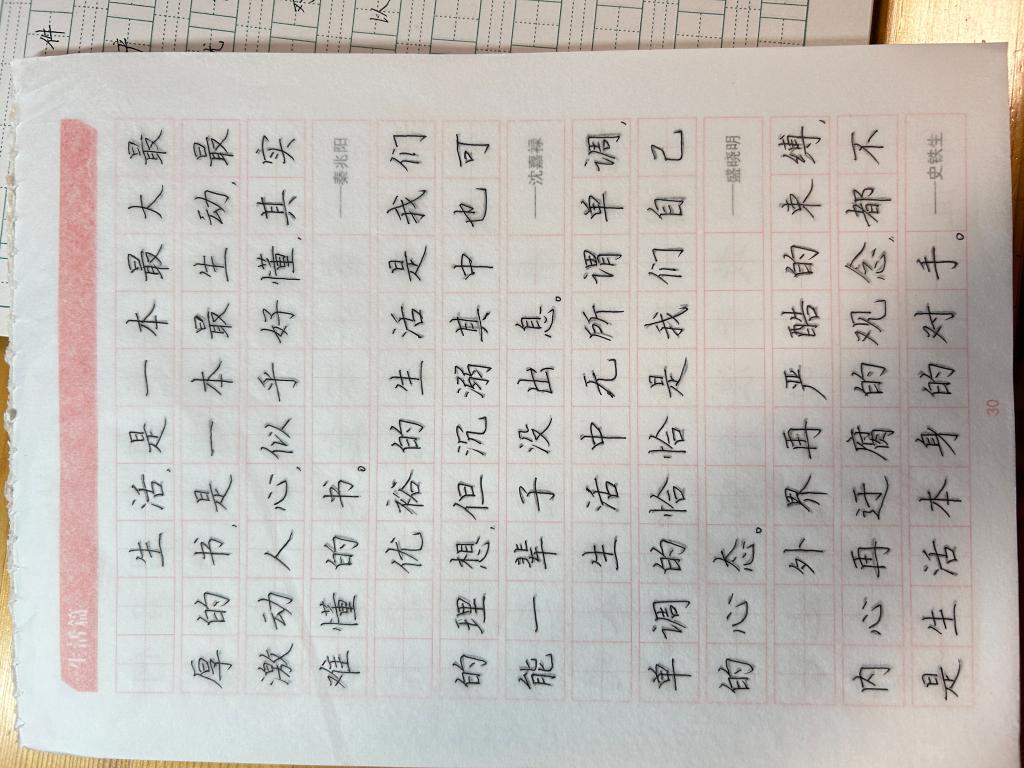 生活篇
生活,是一本最大最
厚的书,是一本最生动,最
激动人心,似乎好懂,其实
难懂的书。
——秦兆阳
优裕的生活是我们
的理想,但沉溺其中也可
能一辈子没出息。
——沈嘉禄
生活中无所谓单调,
单调的恰恰是我们自己
的心态。
——盛晓明
外界再严酷的束缚,
内心再迂腐的观念,都不
是生活本身的对手。
——史铁生
30
件